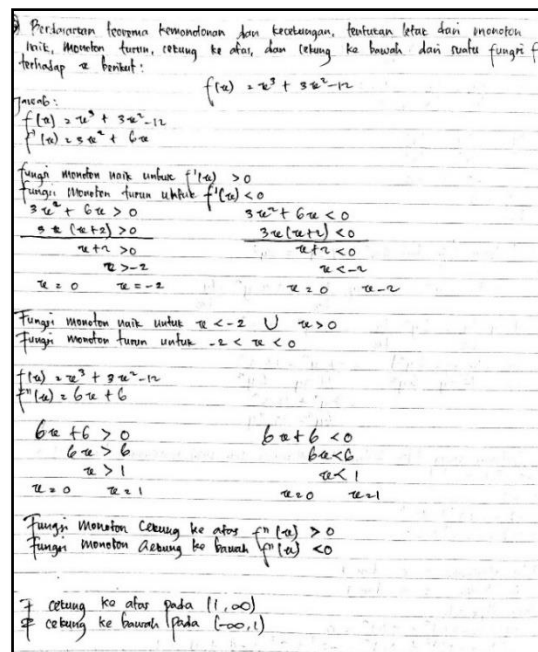 Berdasarkan teorema kemonotonan dan kecekungan, tentukan letak dari monoton
naik, monoton turun, cekung ke atas, dan cekung ke bawah dari suatu fungsi f
terhadap x berikut:
f(x) = x³ + 3x² - 12
Jawab:
f(x) = x³ + 3x² - 12
f'(x) = 3x² + 6x
fungsi monoton naik untuk f'(x) > 0
fungsi monoton turun untuk f'(x) < 0
3x² + 6x > 0 3x² + 6x < 0
3x (x+2) > 0 3x (x+2) < 0
x+2 > 0 x+2 < 0
x > -2 x < -2
x = 0 x = -2 x = 0 x -2
Fungsi monoton naik untuk x < -2 ∪ x > 0
Fungsi monoton turun untuk -2 < x < 0
f(x) = x³ + 3x² - 12
f"(x) = 6x + 6
6x + 6 > 0 6x + 6 < 0
6x > 6 6x < 6
x > 1 x < 1
x = 0 x = 1 x = 0 x = 1
Fungsi monoton Cekung ke atas f"(x) > 0
Fungsi monoton cekung ke bawah f"(x) < 0
cekung ke atas pada (1, ∞)
cekung ke bawah pada (-∞, 1)